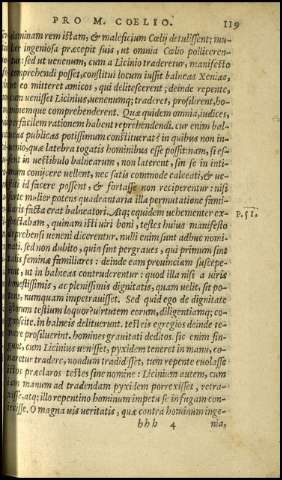 PRO M. COELIO. 119
dominam rem istam, & maleficium Cœlij detulissent: mu-
lier ingeniosa præcepit suis, ut omnia Cœlio polliceren-
tur: sed ut uenenum, cum a Licinio traderetur, manifesto
comprehendi posset, constitui locum iussit balneas Xenias,
eo mitteret amicos, qui delitescerent, deinde repente,
cum uenisset Licinius, uenenumq; traderet, prosilirent, ho-
minemque comprehenderent. Quæ quidem omnia, iudices,
facilem rationem habent reprehendendi. cur enim bal-
neas publicas potissimum constituerat? in quibus non in-
uenio, quæ latebra togatis hominibus esse possit. nam, si es-
sent in uestibulo balnearum, non laterent, sin se in inti-
mum conijcere uellent, nec satis commode calceati, & ues-
titi id facere possent, & fortasse non reciperentur: nisi
forte mulier potens quadrantaria illa permutatione fami-
liaris facta erat balneatori. Atq; equidem uehementer ex-
spectabam, quinam isti uiri boni, testes huius manifesto
deprehensi ueneni dicerentur. nulli enim sunt adhuc nomi-
nati. sed non dubito, quin sint pergraues, qui primum sint
talis feminæ familiares: deinde eam prouinciam suscepe-
rint, ut in balneas contruderentur: quod illa nisi a uiris
honestissimis, ac plenissimis dignitatis, quam uelit, sit po-
tens, numquam impetrauisset. Sed quid ego de dignitate
istorum testium loquor? uirtutem eorum, diligentiamq; co-
gnoscite. in balneis delituerunt. testeis egregios deinde te-
mere prosiluerunt. homines grauitati deditos. sic enim fin-
gitis, cum Licinius uenisset, pyxidem teneret in manu, co-
naretur tradere, nondum tradidisset, tum repente euolasse
istos præclaros testes sine nomine: Licinium autem, cum
iam manum ad tradendam pyxidem porrexisset, retra-
xisse, atq; illo repentino hominum impetu se in fugam con-
iecisse. O magna uis ueritatis, quæ contra hominum inge-
P. 51.
hhh 4 nia,